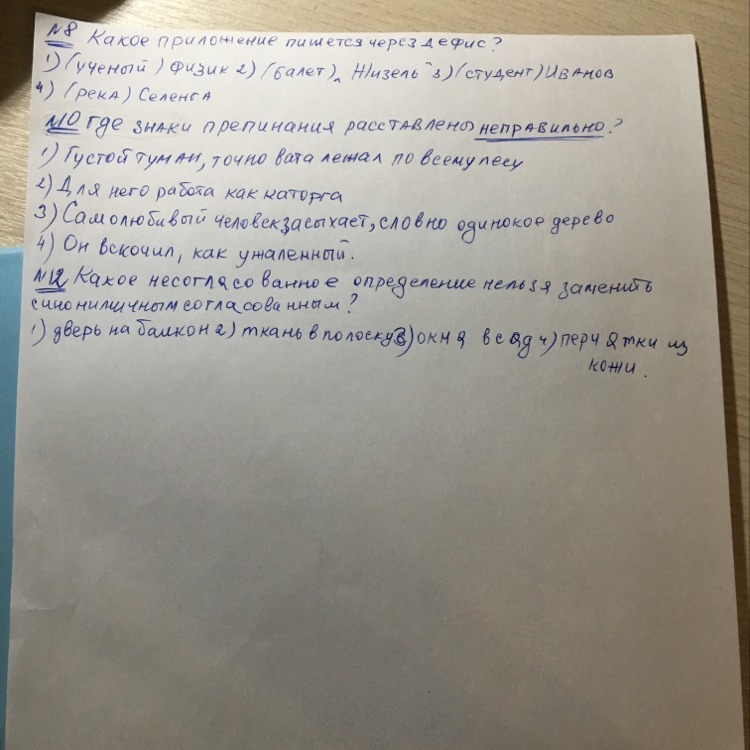 №8 Какое приложение пишется через дефис?
1) (ученый) физик 2) (балет) „Жизель" 3) (студент) Иванов
4) (река) Селенга
№10 Где знаки препинания расставлены неправильно?
1) Густой туман, точно вата лежал по всему лесу
2) Для него работа как каторга
3) Самолюбивый человек засыхает, словно одинокое дерево
4) Он вскочил, как ужаленный.
№12 Какое несогласованное определение нельзя заменить
синонимичным согласованным?
1) дверь на балкон 2) ткань в полоску 3) окна в сад 4) перчатки из
кожи.